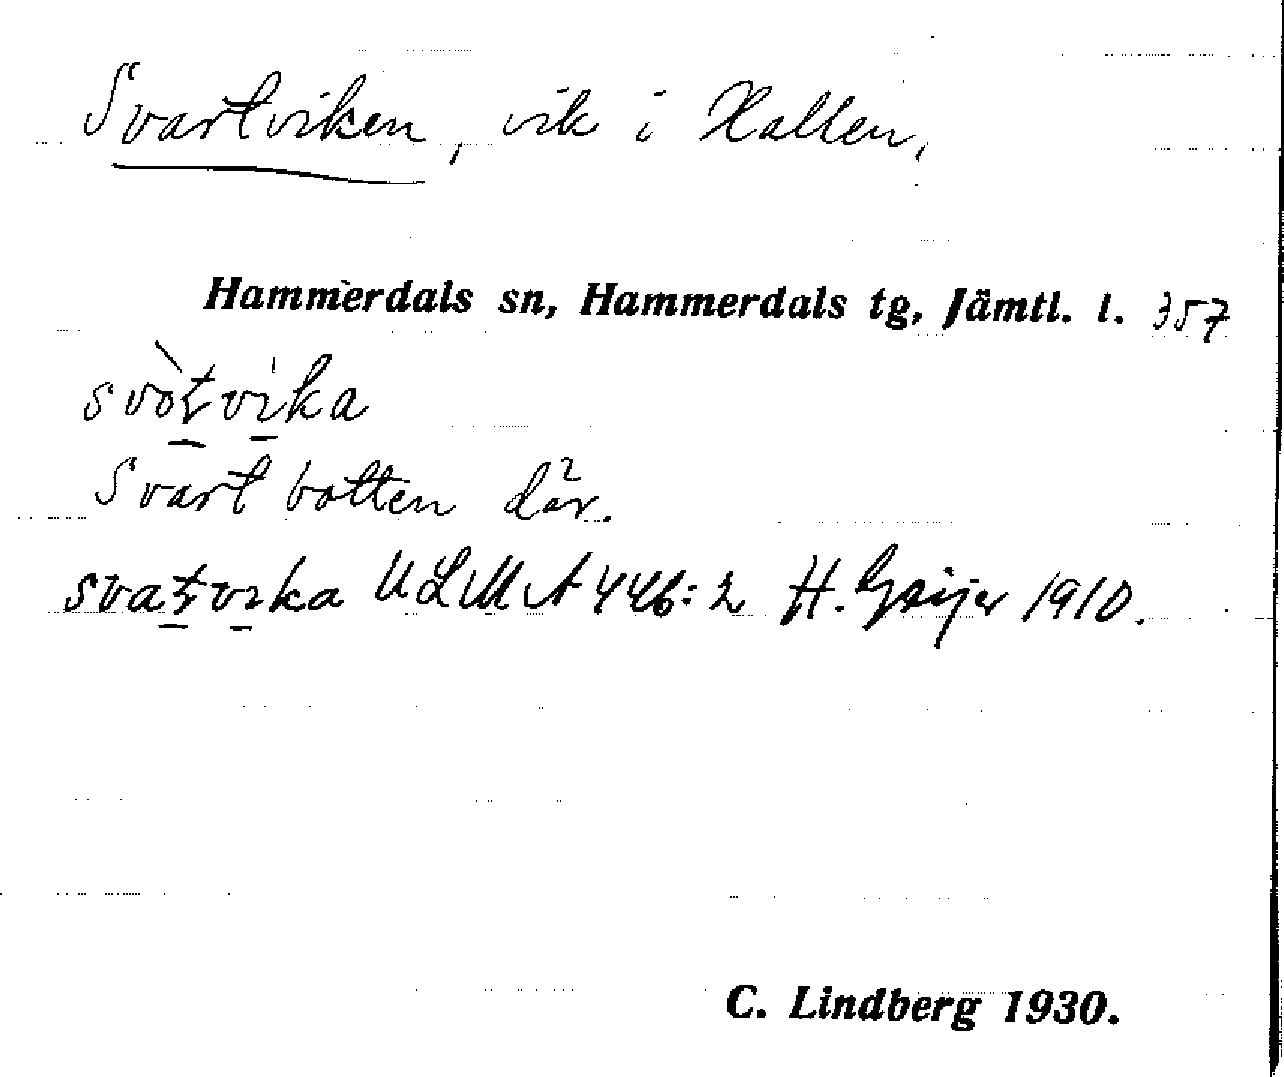 Svartviken, vik i Hallen,
Hammerdals sn, Hammerdals tg, Jämtl. l. 357
svòṯvi̱ka
Svart botten där.
svaṯvi̱ka ULMA 446:2 H. Geijer 1910.
C. Lindberg 1930.